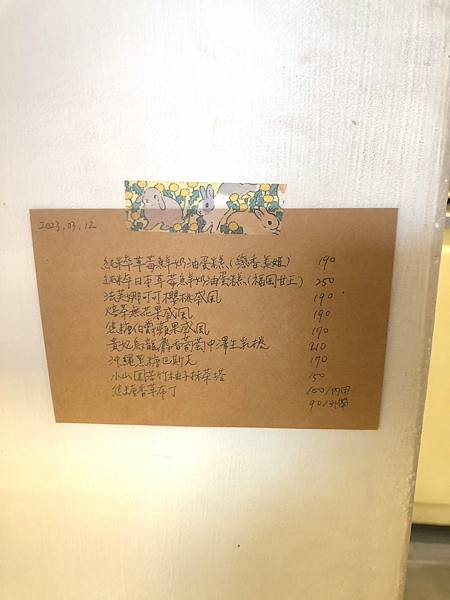 2023.03.12
純粹草莓鮮奶油蛋糕(戀香美姬) 190
純粹日本草莓鮮奶油蛋糕(福岡甘王) 250
法芙娜可可櫻桃戚風 190
烤茶無花果戚風 190
焦糖伯爵蘋果戚風 170
貴妃烏龍麝香葡萄中澤生乳捲 210
沖繩黑糖巴斯克 170
小山園若竹柚子抹茶塔 150
焦糖香草布丁 100/內用
90/外帶